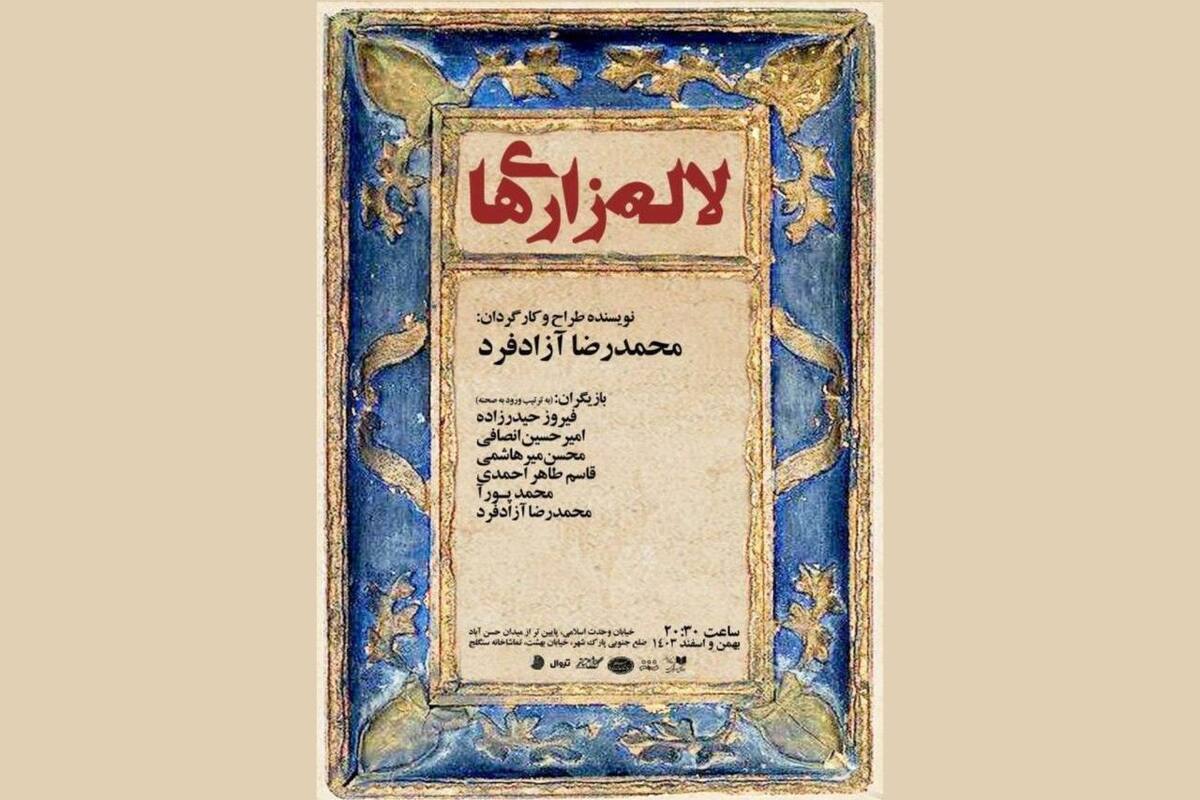 لاله‌زاری‌ها
نویسنده طراح و کارگردان:
محمدرضا آزادفرد
بازیگران: (به ترتیب ورود به صحنه)
فیروز حیدرزاده
امیرحسین انصافی
محسن میرهاشمی
قاسم طاهر احمدی
محمد پورآ
محمدرضا آزادفرد
ساعت ۲۰:۳۰
بهمن و اسفند ۱۴۰۳
خیابان وحدت اسلامی، پایین تر از میدان حسن آباد
ضلع جنوبی پارک شهر، خیابان بهشت، تماشاخانه سنگلج
تروال